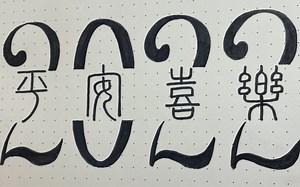 2022
平安喜樂